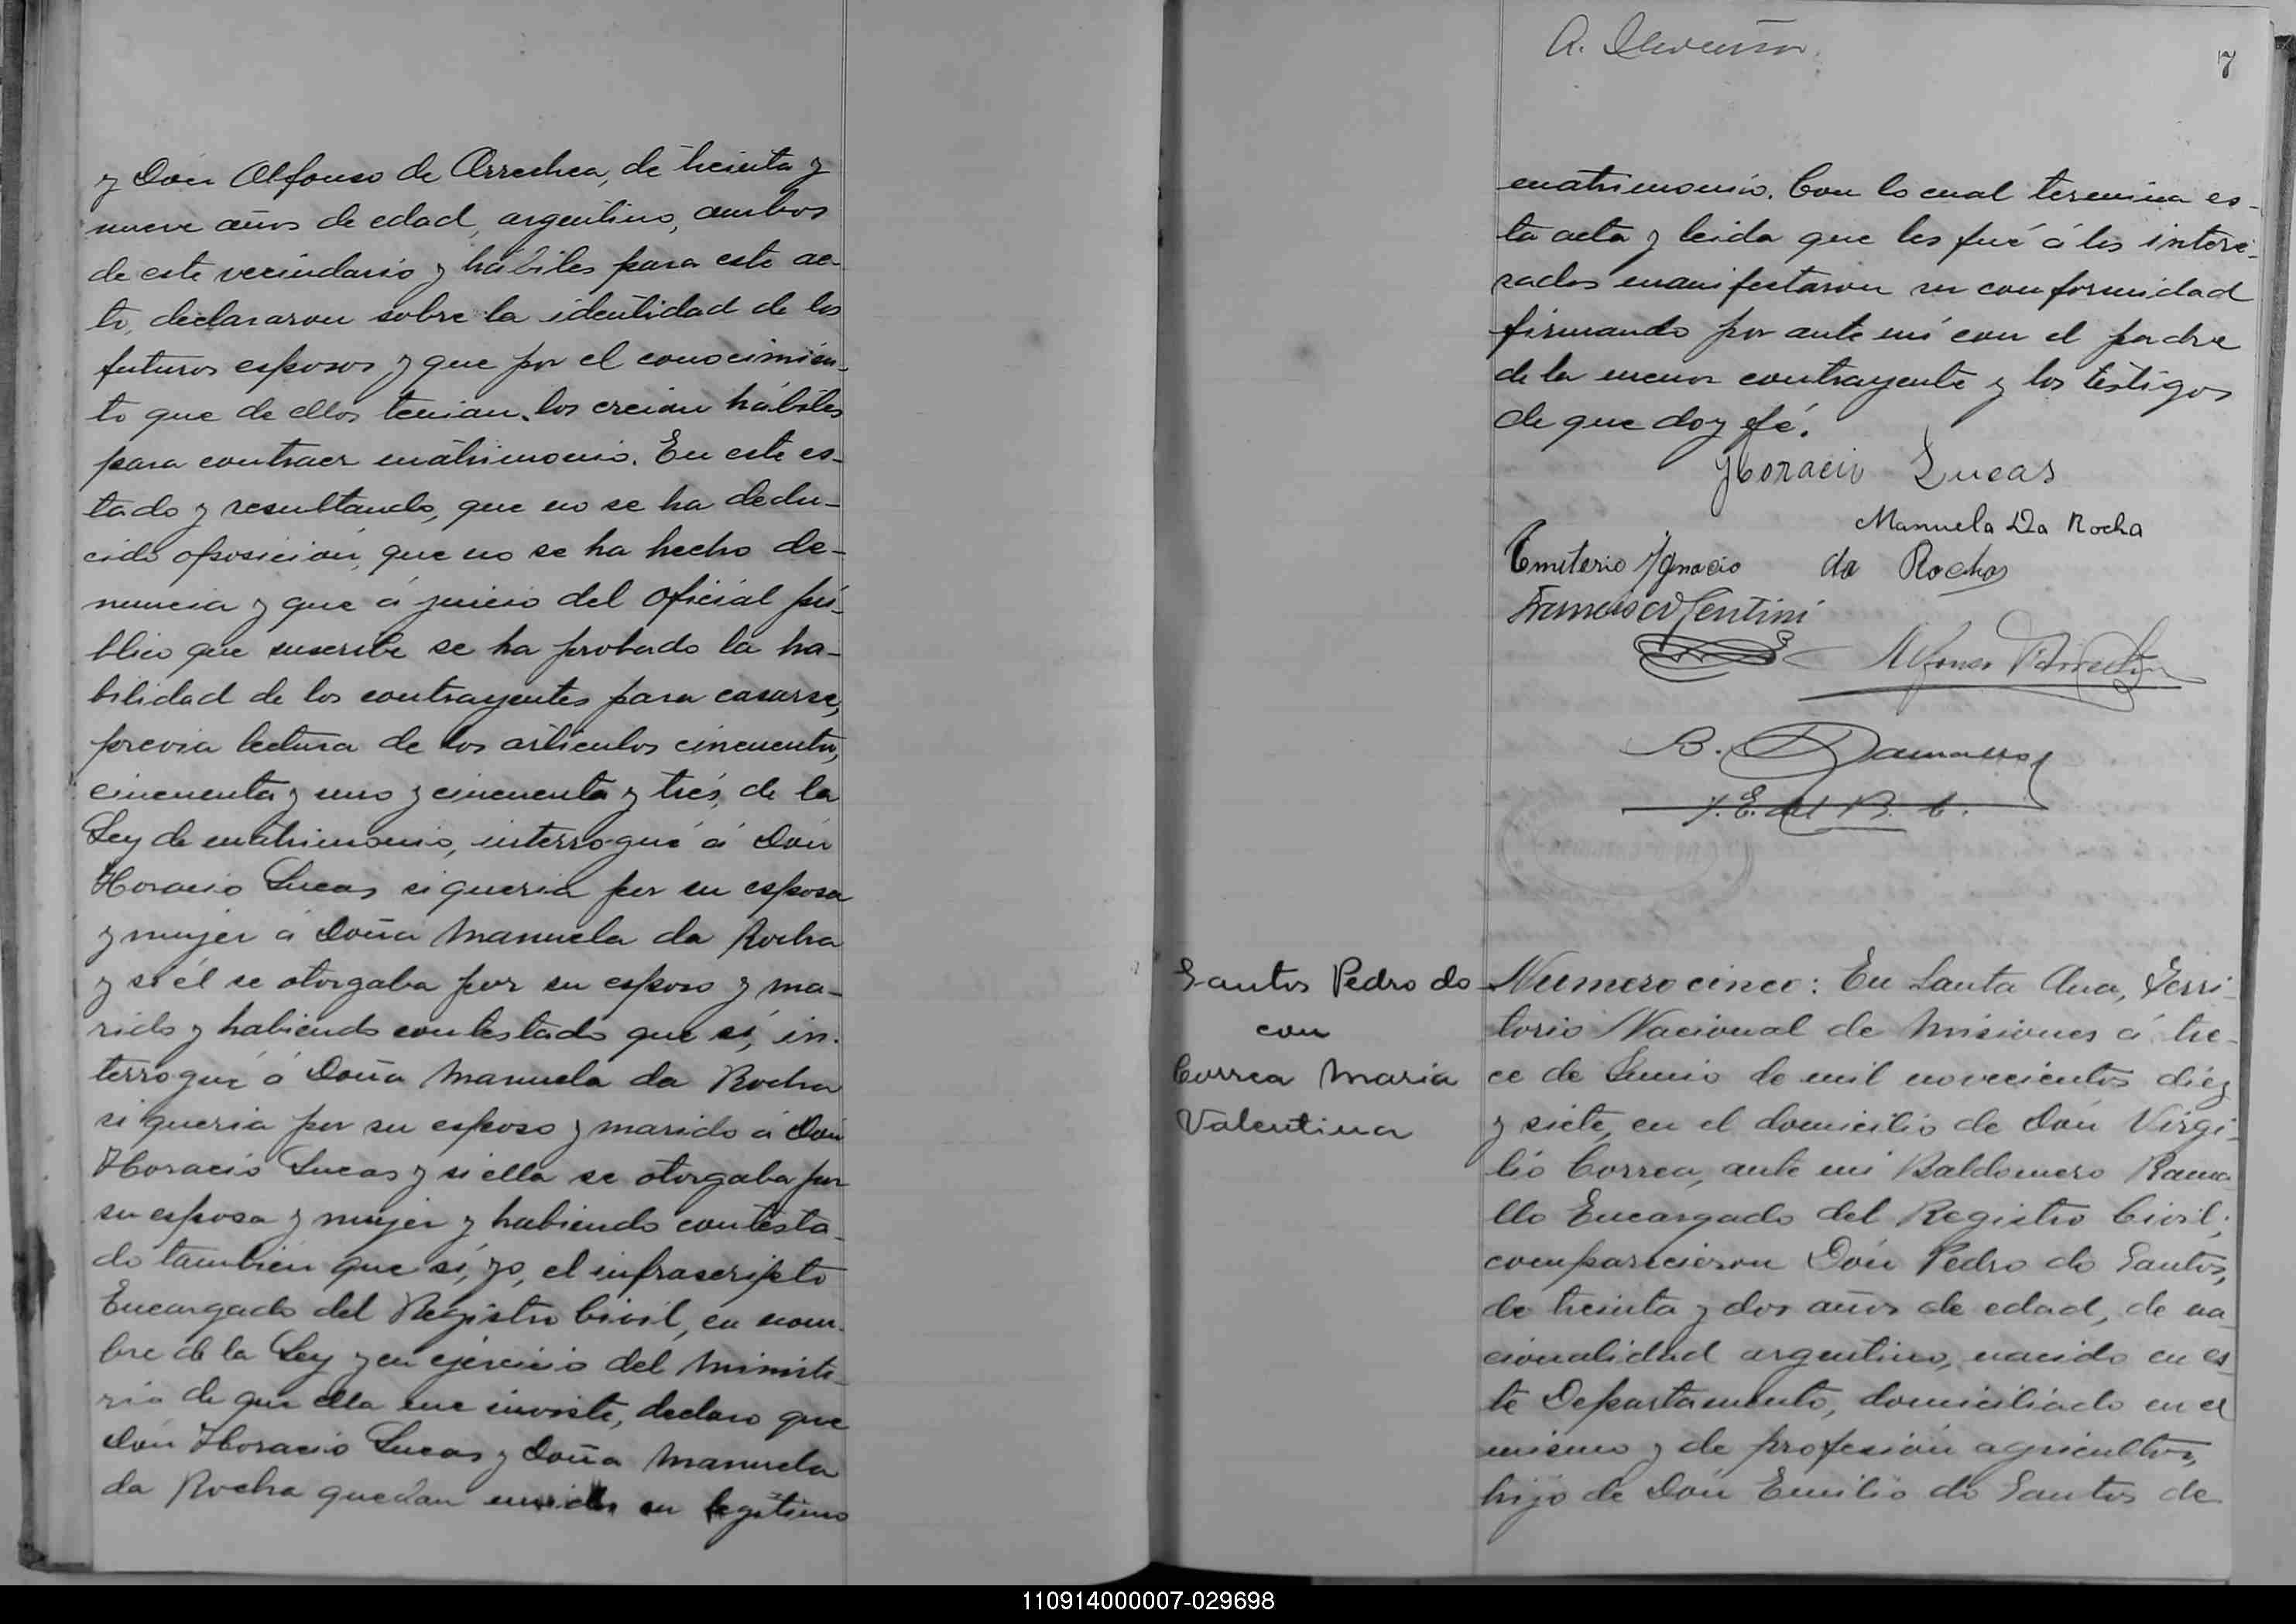 y Don Alfonso de Arrechea, de treinta y
nueve años de edad, argentino, ambos
de este vecindario y hábiles para este ac-
to, declararon sobre la identidad de los
futuros esposos y que por el conocimien-
to que de ellos tenian, los creian hábiles
para contraer matrimonio. En este es-
tado y resultando, que no se ha dedu-
cido oposición, que no se ha hecho de-
nuncia y que á juicio del Oficial pú-
blico que suscribe se ha probado la ha-
bilidad de los contrayentes para casarse,
previa lectura de los artículos cincuenta,
cincuenta y uno y cincuenta y trés, de la
Ley de matrimonio, interrogué á Don
Horacio Lucas si queria por su esposa
y mujer á Doña Manuela da Rocha
y si él se otorgaba por su esposo y ma-
rido y habiendo contestado que sí, in-
terrogué á Doña Manuela da Rocha
si queria por su esposo y marido á Don
Horacio Lucas y si ella se otorgaba por
su esposa y mujer y habiendo contesta-
do tambien que sí, yo, el infrascripto
Encargado del Registro Civil, en nom-
bre de la Ley y en ejercicio del Ministe-
rio de que ella me inviste, declaro que
Don Horacio Lucas y Doña Manuela
da Rocha quedan unidos en legítimo
A.
7
matrimonio. Con lo cual termina es-
ta acta y leida que les fué á los intere-
sados manifestaron su conformidad
firmando por ante mí con el padre
de la menor contrayente y los testigos
de que doy fé.
Horacio Lucas
Manuela Da Rocha
Emeterio Ignacio da Rocha
Francisco Gentini
Alfonso Arrechea
B. Ramallo
E. del R. C.
Santos Pedro do
con
Correa Maria
Valentina
Numero cinco: En Santa Ana, Terri-
torio Nacional de Misiones á tre-
ce de Junio de mil novecientos diez
y siete, en el domicilio de Don Virgi-
lio Correa, ante mi Baldomero Rama-
llo Encargado del Registro Civil;
comparecieron Don Pedro do Santos,
de treinta y dos años de edad, de na-
cionalidad argentino, nacido en es-
te Departamento, domiciliado en el
mismo y de profesión agricultor,
hijo de Don Emilio do Santos de
110914000007-029698